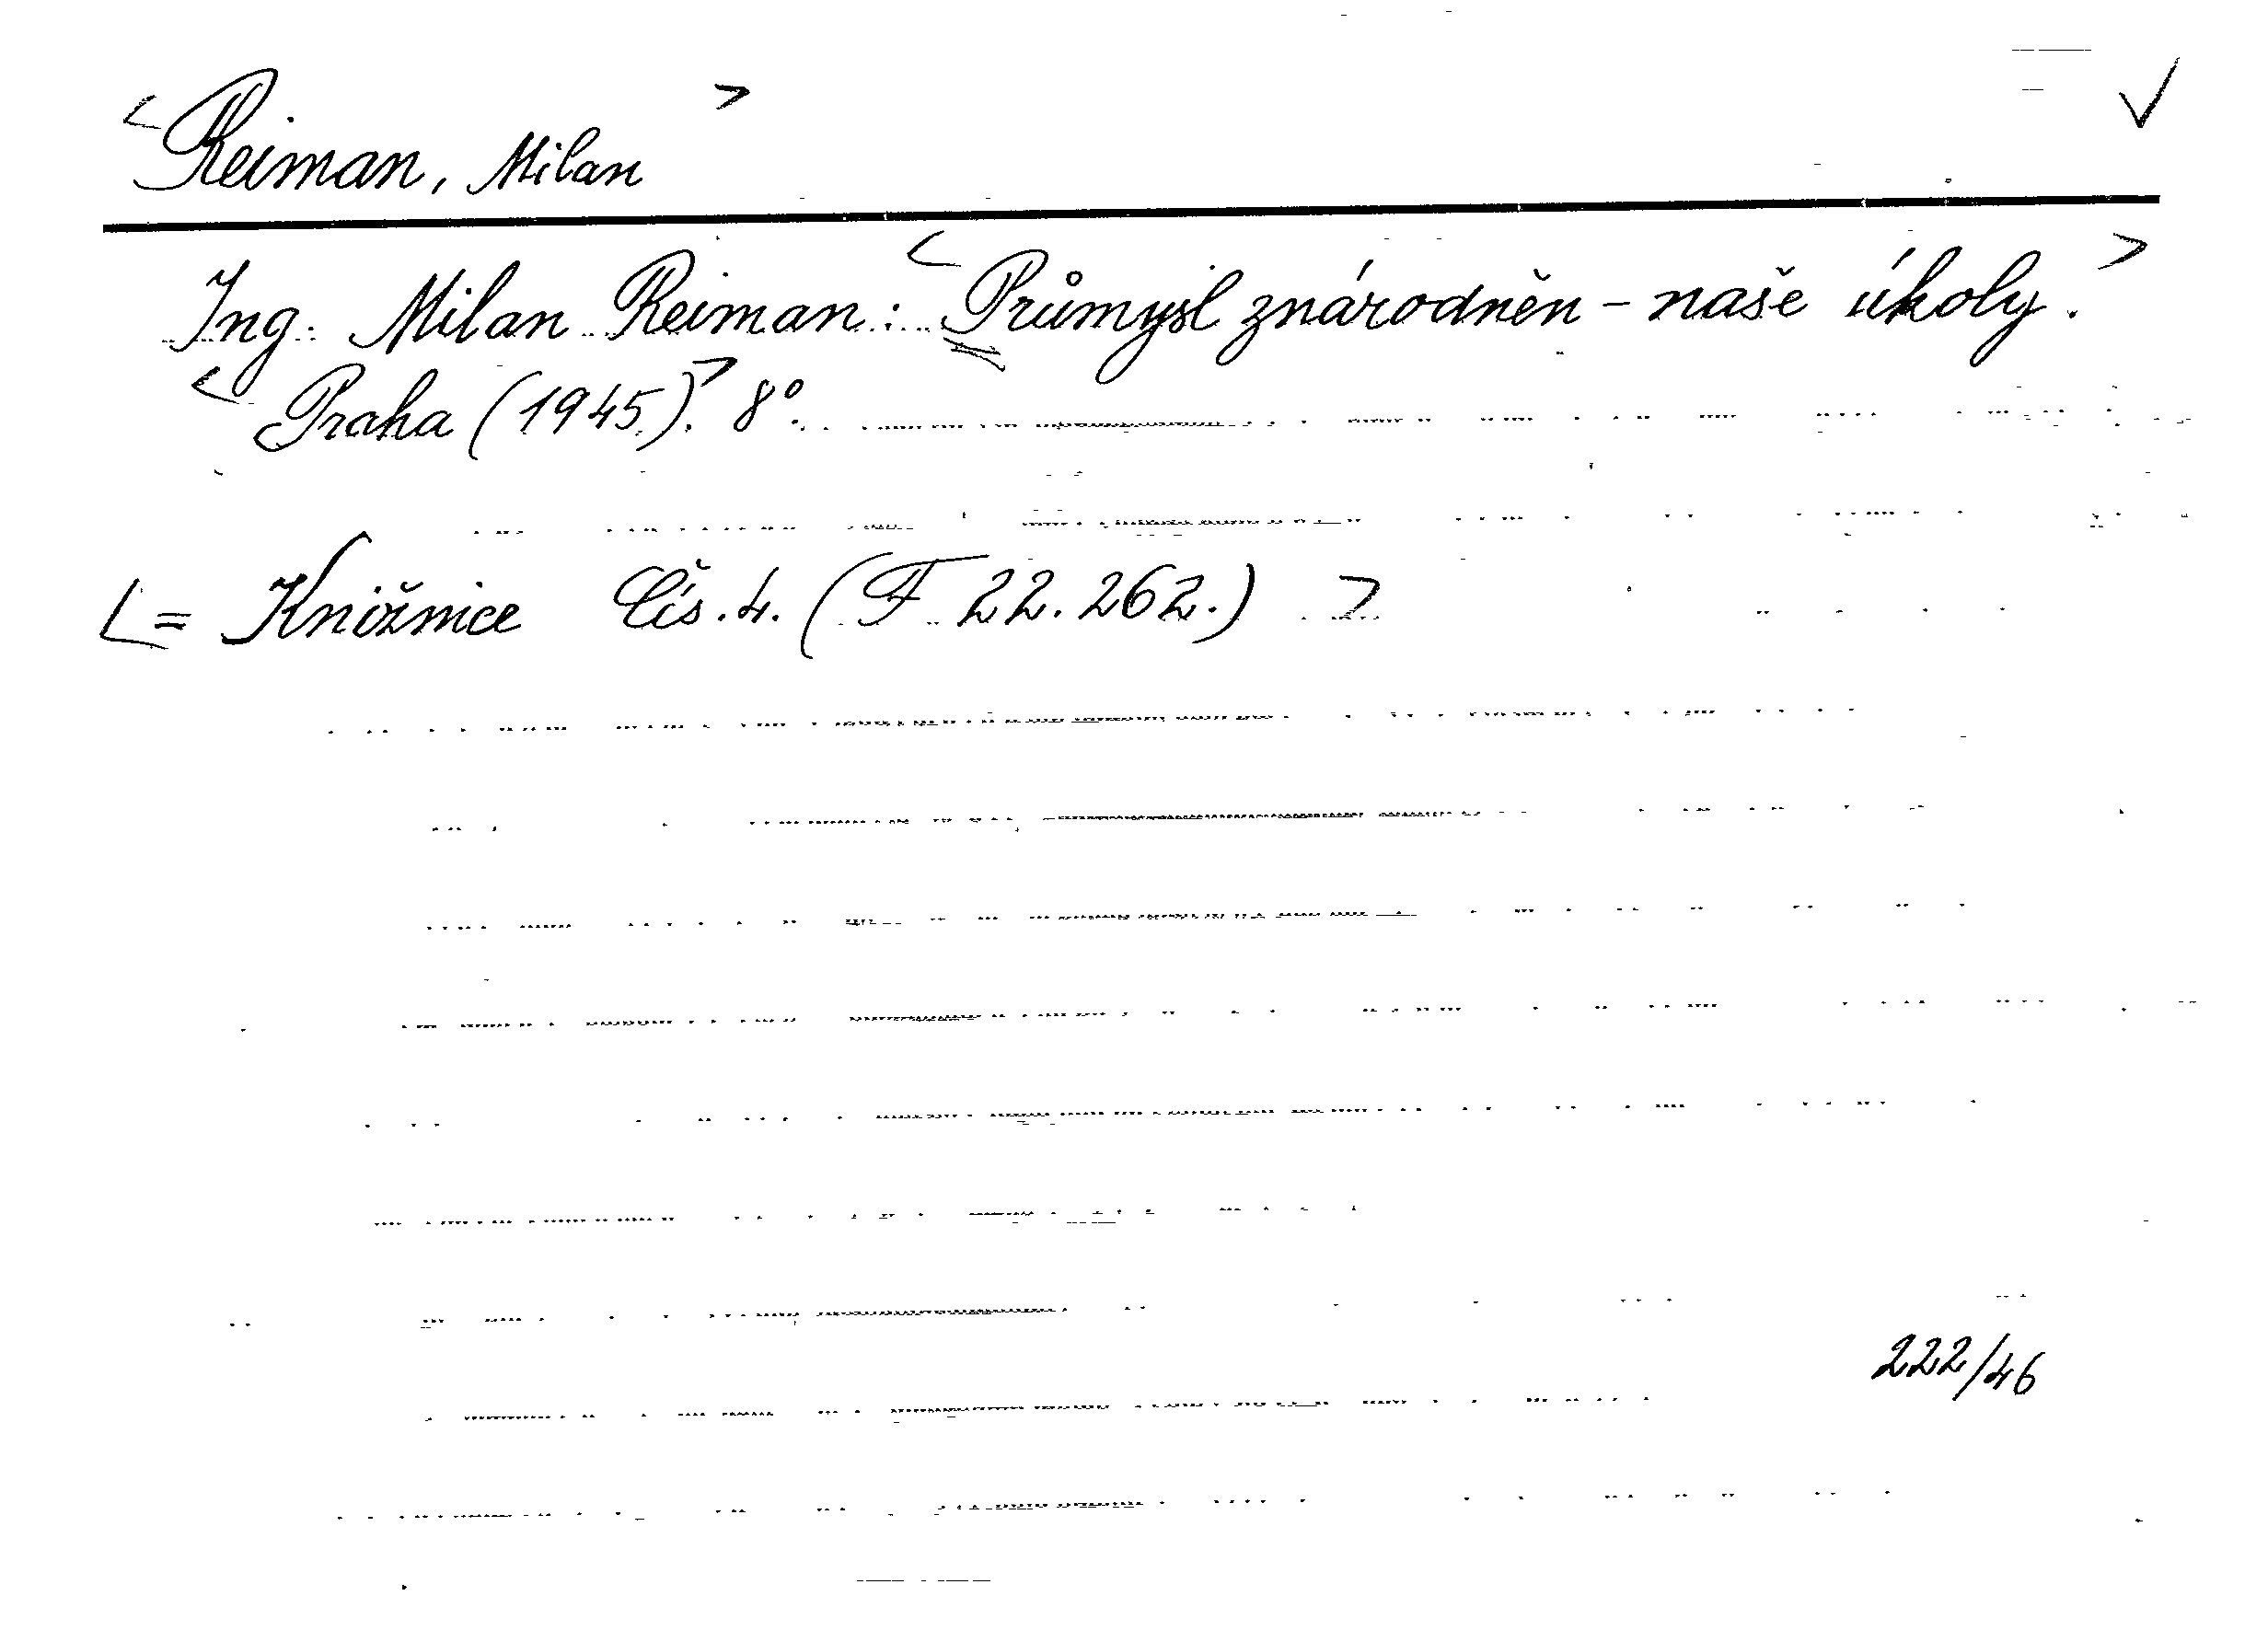 <Reiman, Milan> ✓
Ing. Milan Reiman: <Průmysl znárodněn - naše úkoly.>
<Praha (1945).> 8°.
<= Knižnice Čís. 4. (F 22.262.) >
222/46